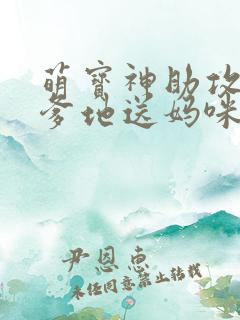 萌寳神助攻
爹地送妈咪
尹恩惠
未经同意禁止转载